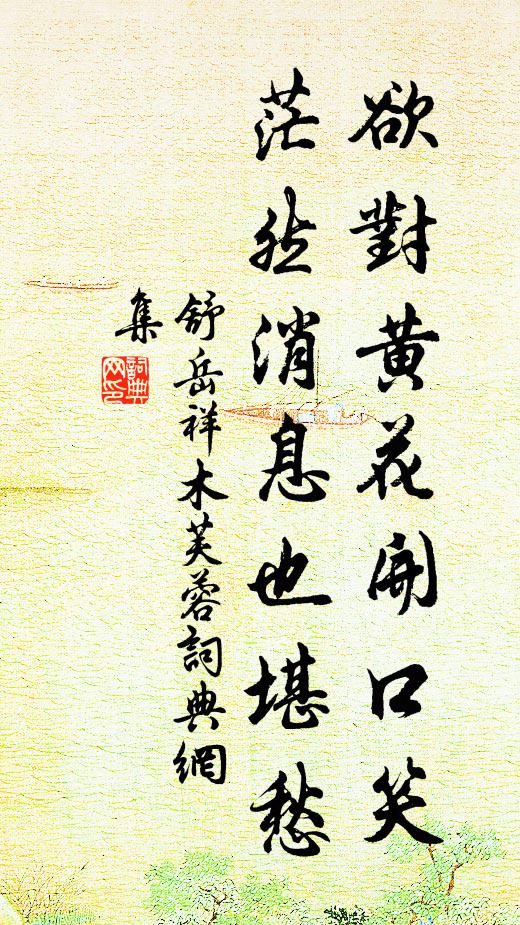 欲對黄花開口笑
茫然消息也堪愁
舒岳祥木芙蓉詞典網
集
詞典
网印